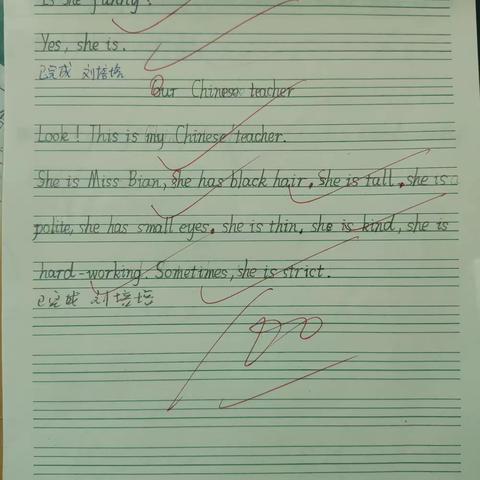 Is she funny?
Yes, she is.
已完成 刘培培
Our Chinese teacher
Look! This is my Chinese teacher.
She is Miss Bian, she has black hair. She is tall. she is
polite, she has small eyes. she is thin, she is kind, she is
hard-working. Sometimes, she is strict.
已完成 刘培培
100